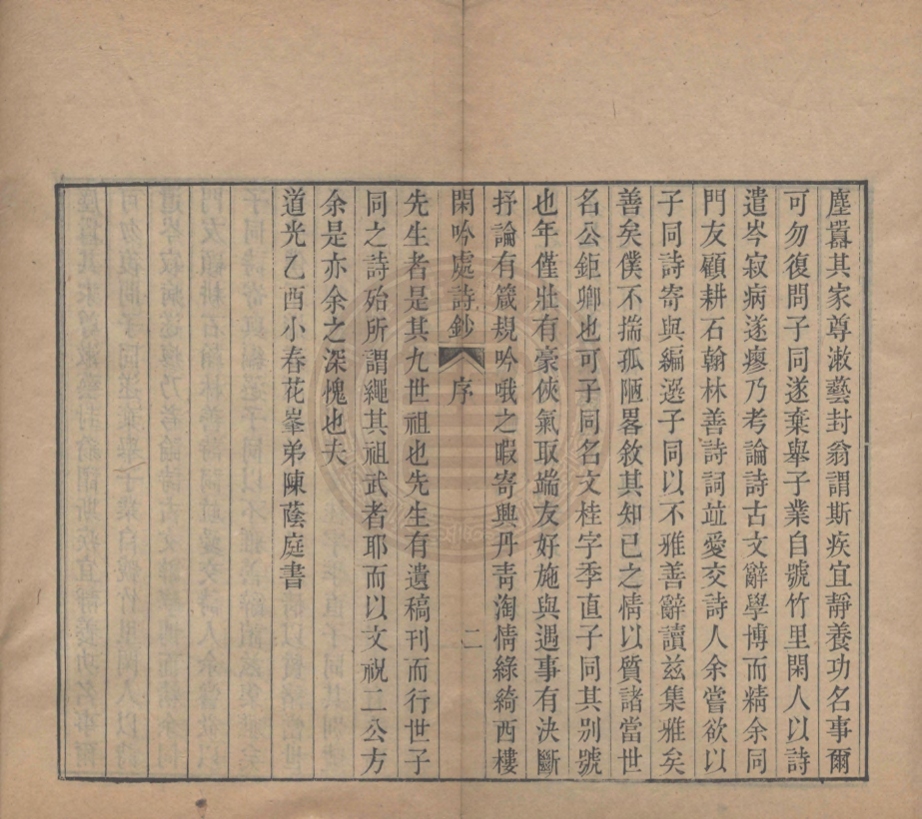 塵囂其家尊漱藝封翁謂斯疾宜靜養功名事爾
可勿復問子同遂棄舉子業自號竹里閑人以詩
遣岑寂病遂瘳乃考論詩古文辭學博而精余同
門友顧耕石翰林善詩詞竝愛交詩人余嘗欲以
子同詩寄與編選子同以不雅善辭讀玆集雅矣
善矣僕不揣孤陋畧敘其知已之情以質諸當世
名公鉅卿也可子同名文桂字季直子同其別號
也年僅壯有豪俠氣取端友好施與遇事有決斷
抒論有箴規吟哦之暇寄興丹靑淘情綠綺西樓
閑吟處詩鈔 序 二
先生者是其九世祖也先生有遺稿刊而行世子
同之詩殆所謂繩其祖武者耶而以文祝二公方
余是亦余之深愧也夫
道光乙酉小春花峯弟陳蔭庭書